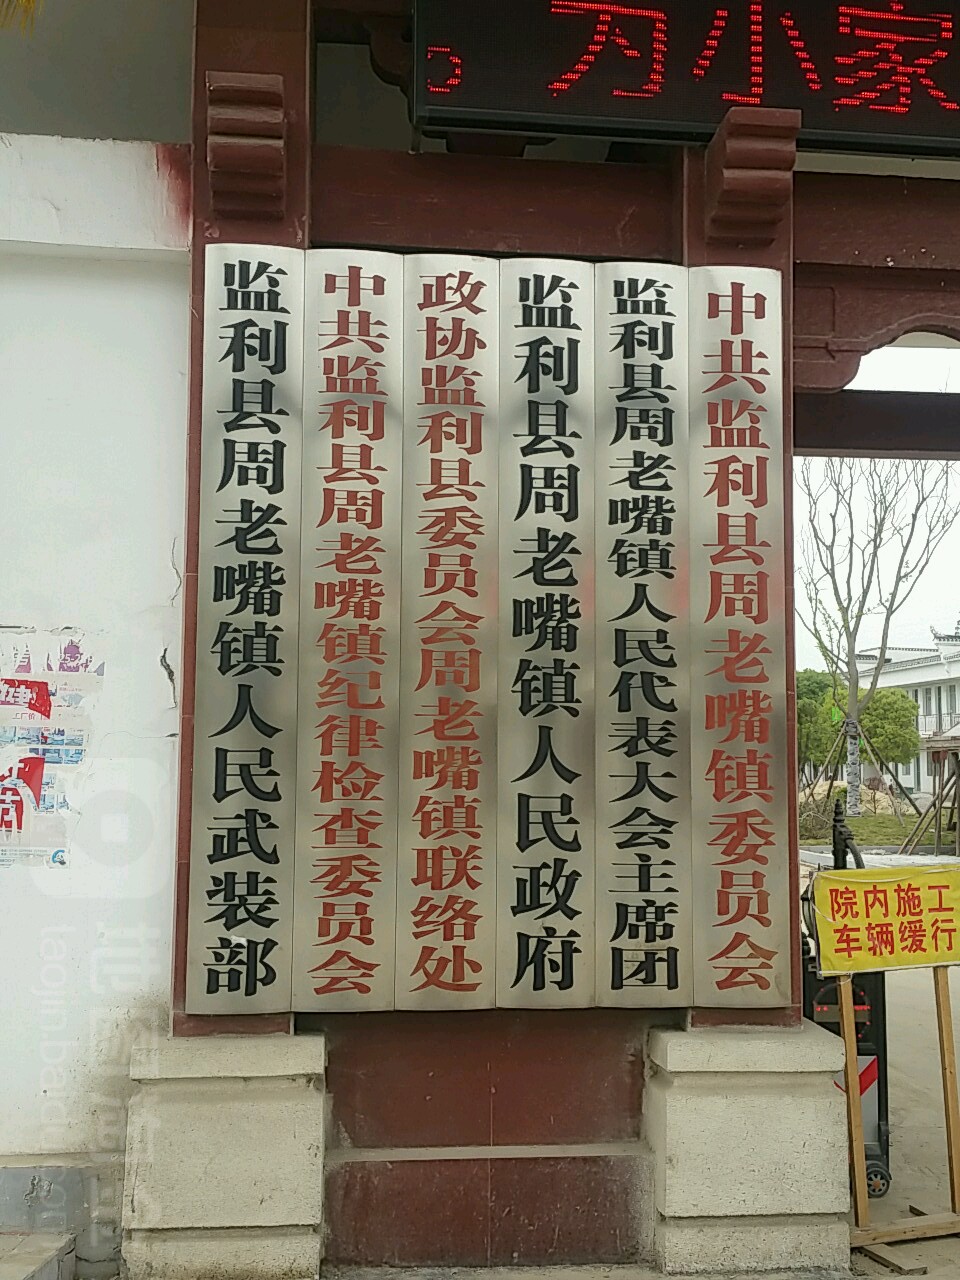 为小家
监利县周老嘴镇人民武装部
中共监利县周老嘴镇纪律检查委员会
政协监利县委员会周老嘴镇联络处
监利县周老嘴镇人民政府
监利县周老嘴镇人民代表大会主席团
中共监利县周老嘴镇委员会
院内施工
车辆缓行